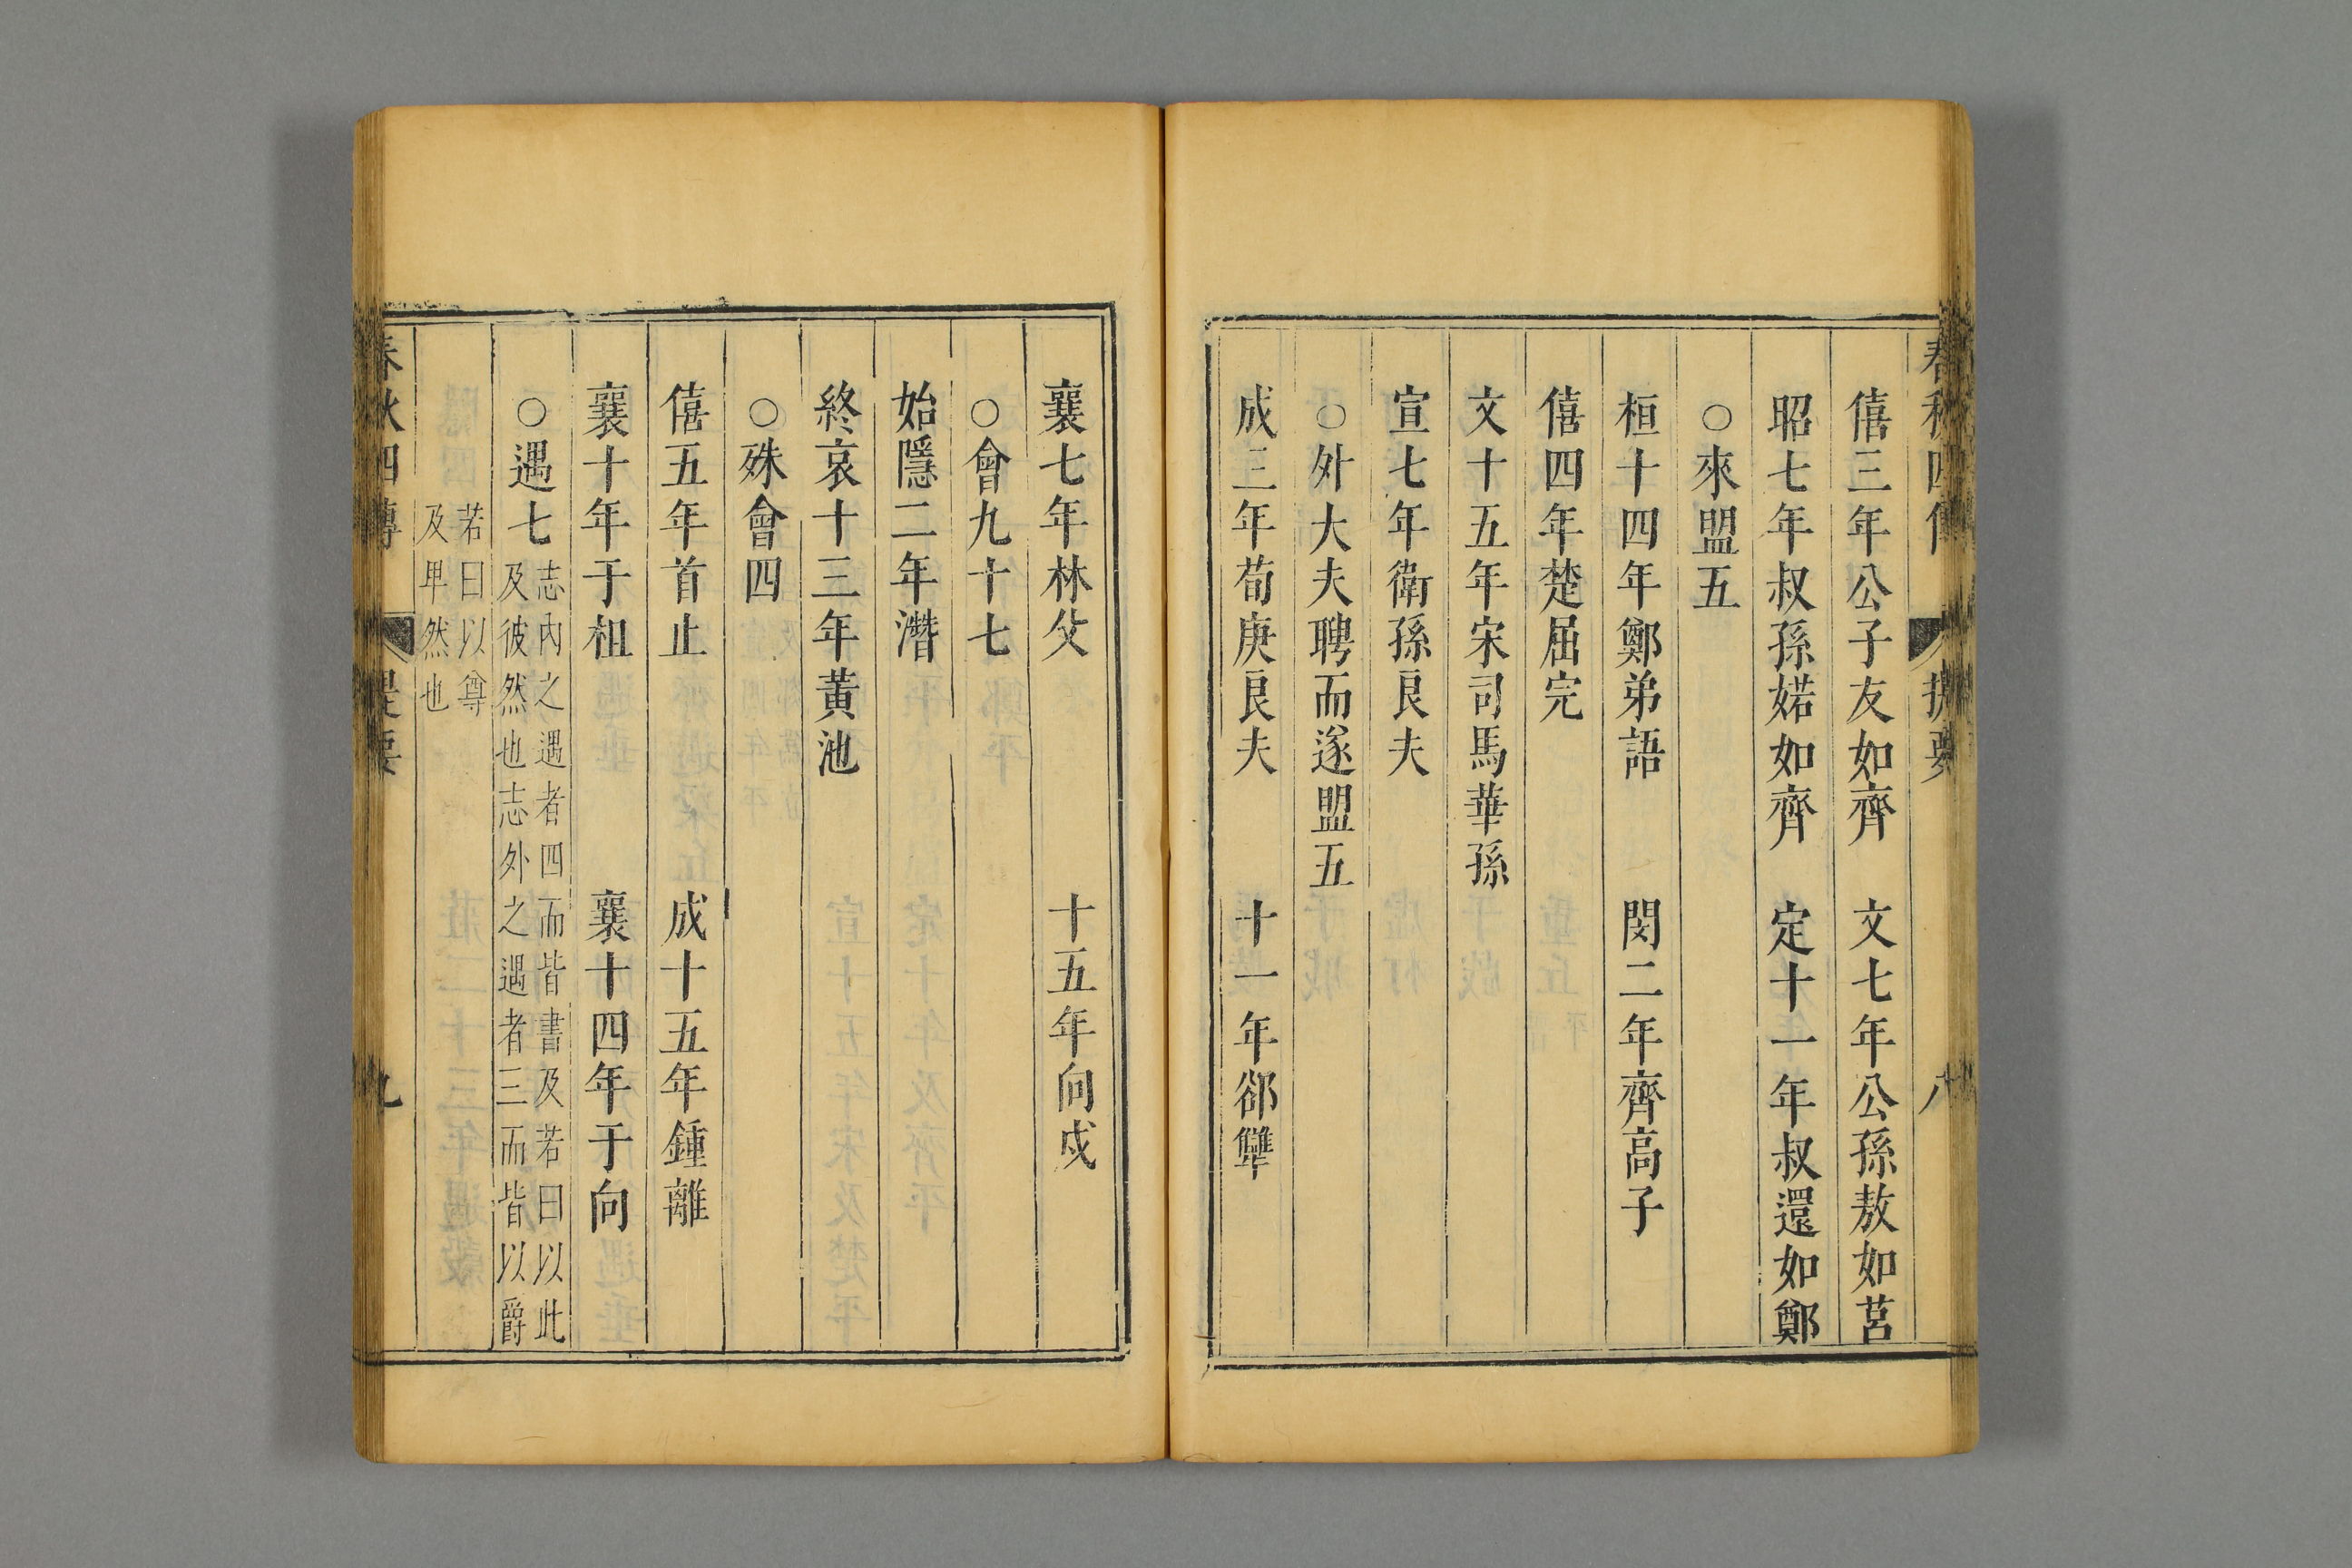 春秋四傳 提要 八
僖三年公子友如齊 文七年公孫敖如莒
昭七年叔孫婼如齊 定十一年叔還如鄭
○來盟五
桓十四年鄭弟語 閔二年齊高子
僖四年楚屈完
文十五年宋司馬華孫
宣七年衛孫良夫
○外大夫聘而遂盟五
成三年荀庚良夫 十一年郤犫
襄七年林父 十五年向戍
○會九十七
始隱二年潛
終哀十三年黃池
○殊會四
僖五年首止 成十五年鍾離
襄十年于柤 襄十四年于向
○遇七 志內之遇者四而皆書及若曰以此
及彼然也志外之遇者三而皆以爵
若曰以尊
及卑然也
春秋四傳 提要 九